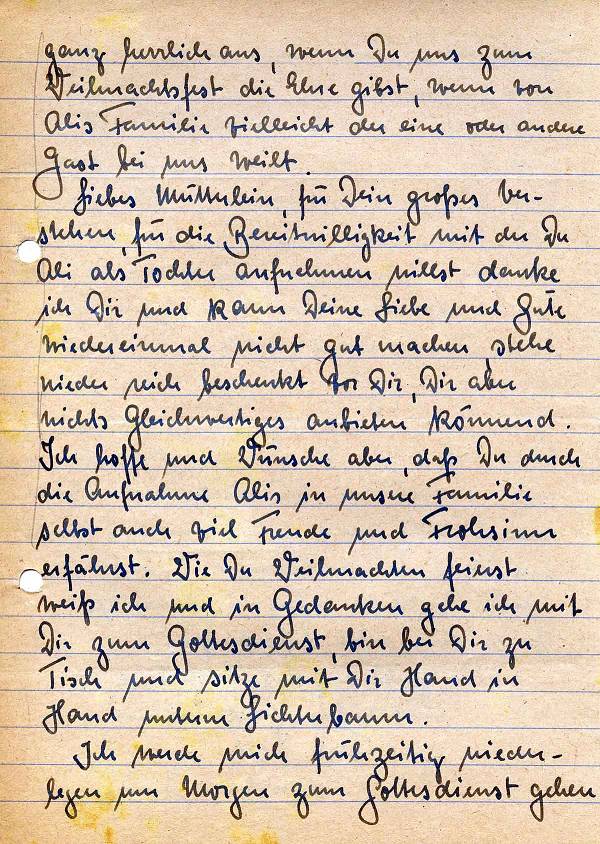 ganz herrlich aus, wenn Du uns zum
Weihnachtsfest die Ehre gibst, wenn von
Alis Familie vielleicht der eine oder andere
Gast bei uns weilt.
Liebes Mütterlein, für Dein großes Ver-
stehen, für die Bereitwilligkeit mit der Du
Ali als Tochter aufnehmen willst danke
ich Dir und kann Deine Liebe und Güte
wiedereinmal nicht gut machen, stehe
wieder reich beschenkt vor Dir, Dir aber
nichts gleichwertiges anbieten könnend.
Ich hoffe und wünsche aber, daß Du durch
die Aufnahme Alis in unsere Familie
selbst auch viel Freude und Frohsinn
erfährst. Wie Du Weihnachten feierst
weiß ich und in Gedanken gehe ich mit
Dir zum Gottesdienst, bin bei Dir zu
Tisch und sitze mit Dir Hand in
Hand unterm Lichterbaum.
Ich werde mich frühzeitig nieder-
legen um Morgen zum Gottesdienst gehen